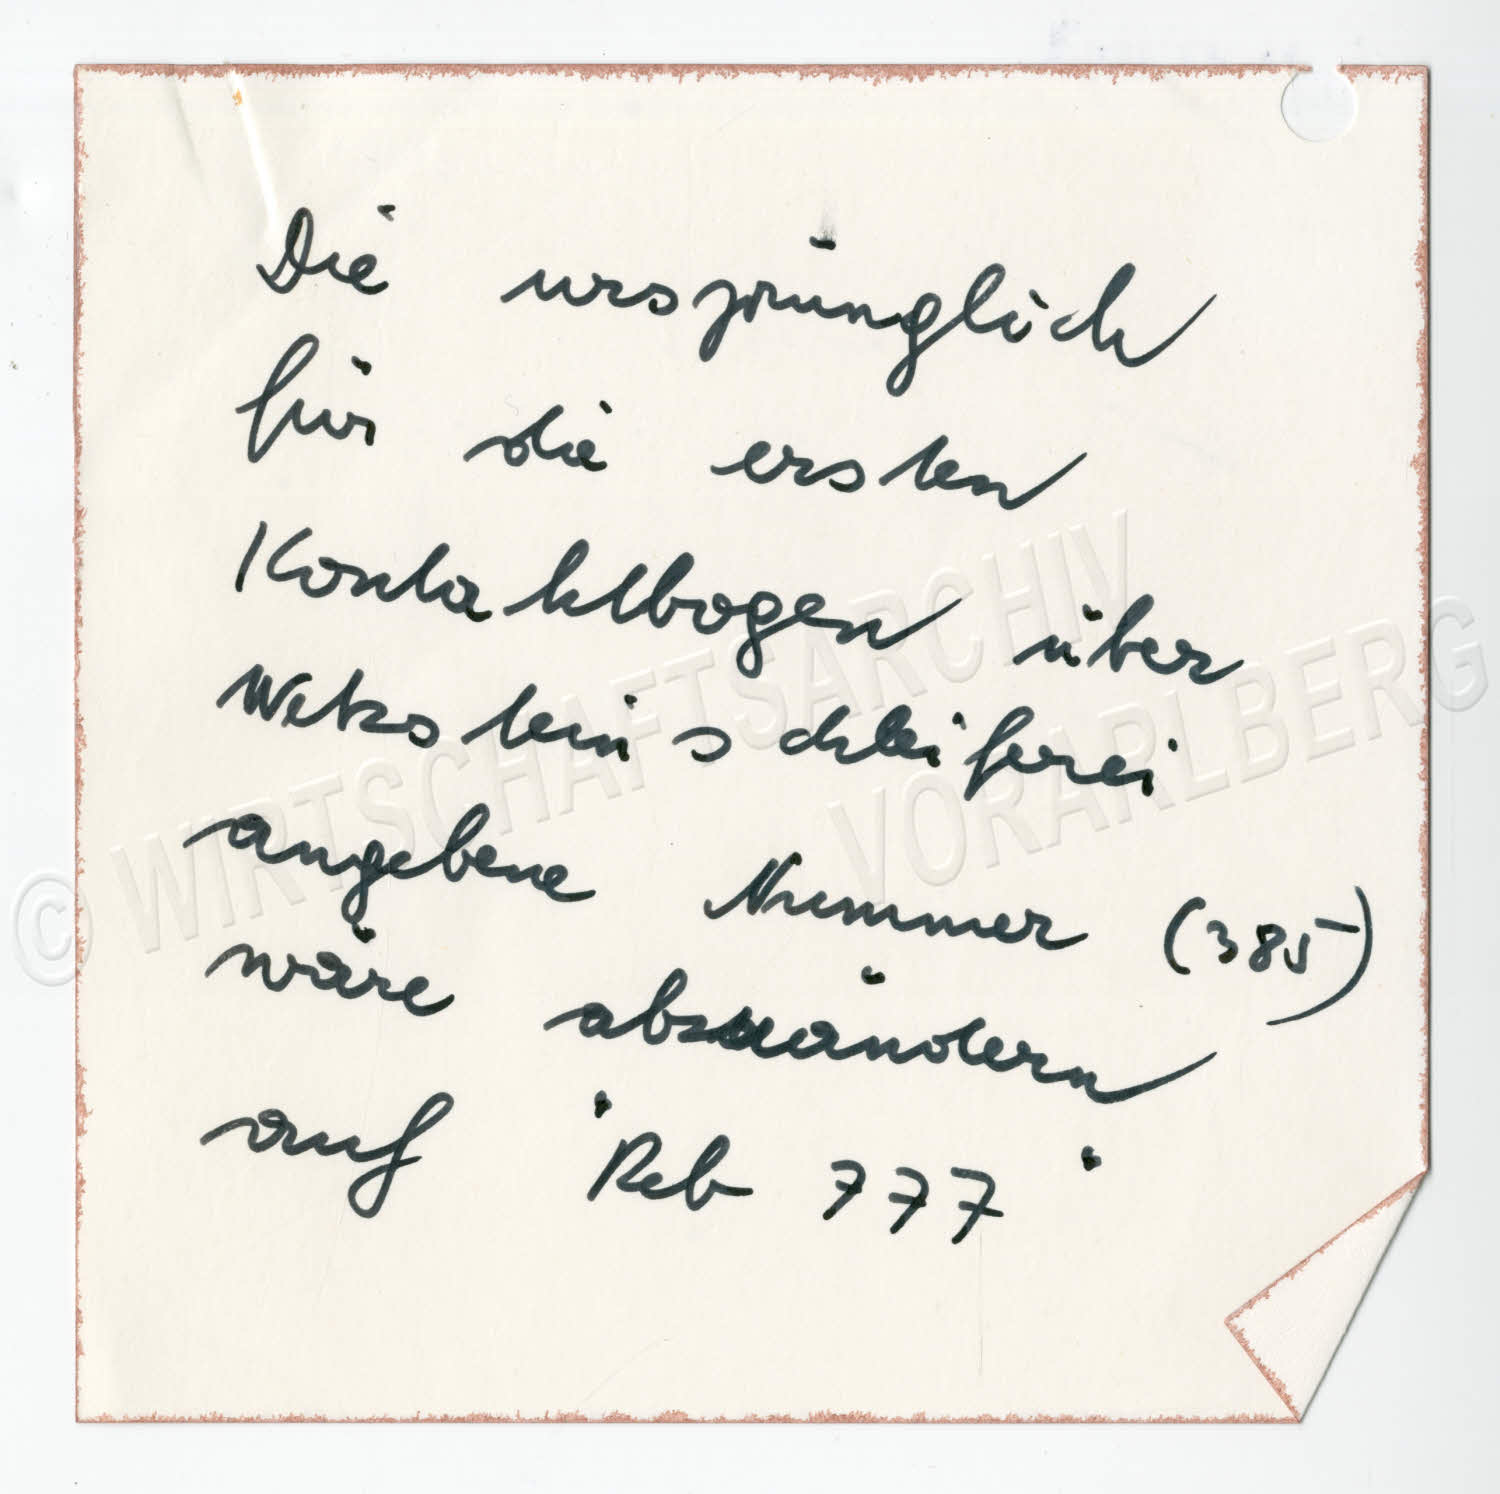 Die ursprünglich
für die ersten
Kontaktbogen über
Wetzsteinschleiferei
angebene Nummer (385)
wäre abzuändern
auf "Reb 777"
© WIRTSCHAFTSARCHIV
VORARLBERG